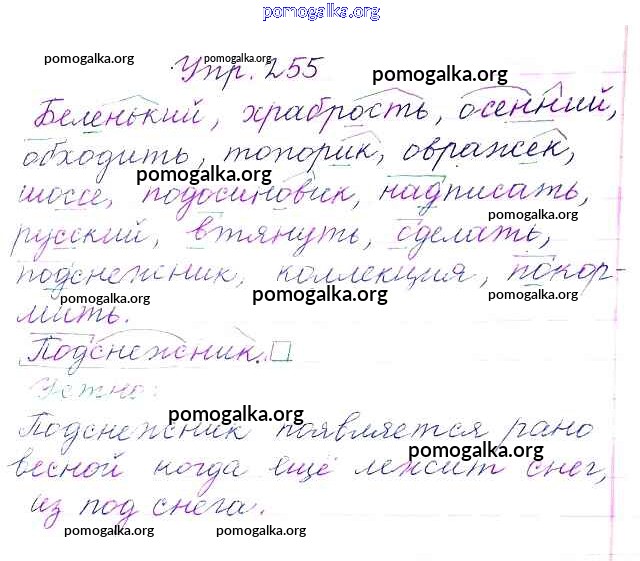 pomogalka.org
pomogalka.org pomogalka.org
Упр. 255 pomogalka.org
Беленький, храбрость, осенний,
обходить, топорик, овражек,
pomogalka.org
шоссе, подосиновик, надписать,
pomogalka.org
русский, втянуть, сделать,
подснежник, коллекция, покор-
pomogalka.org pomogalka.org pomogalka.org
мить.
Подснежник.
Устно:
pomogalka.org
Подснежник появляется рано
pomogalka.org
весной когда ещё лежит снег,
из под снега.
pomogalka.org pomogalka.org